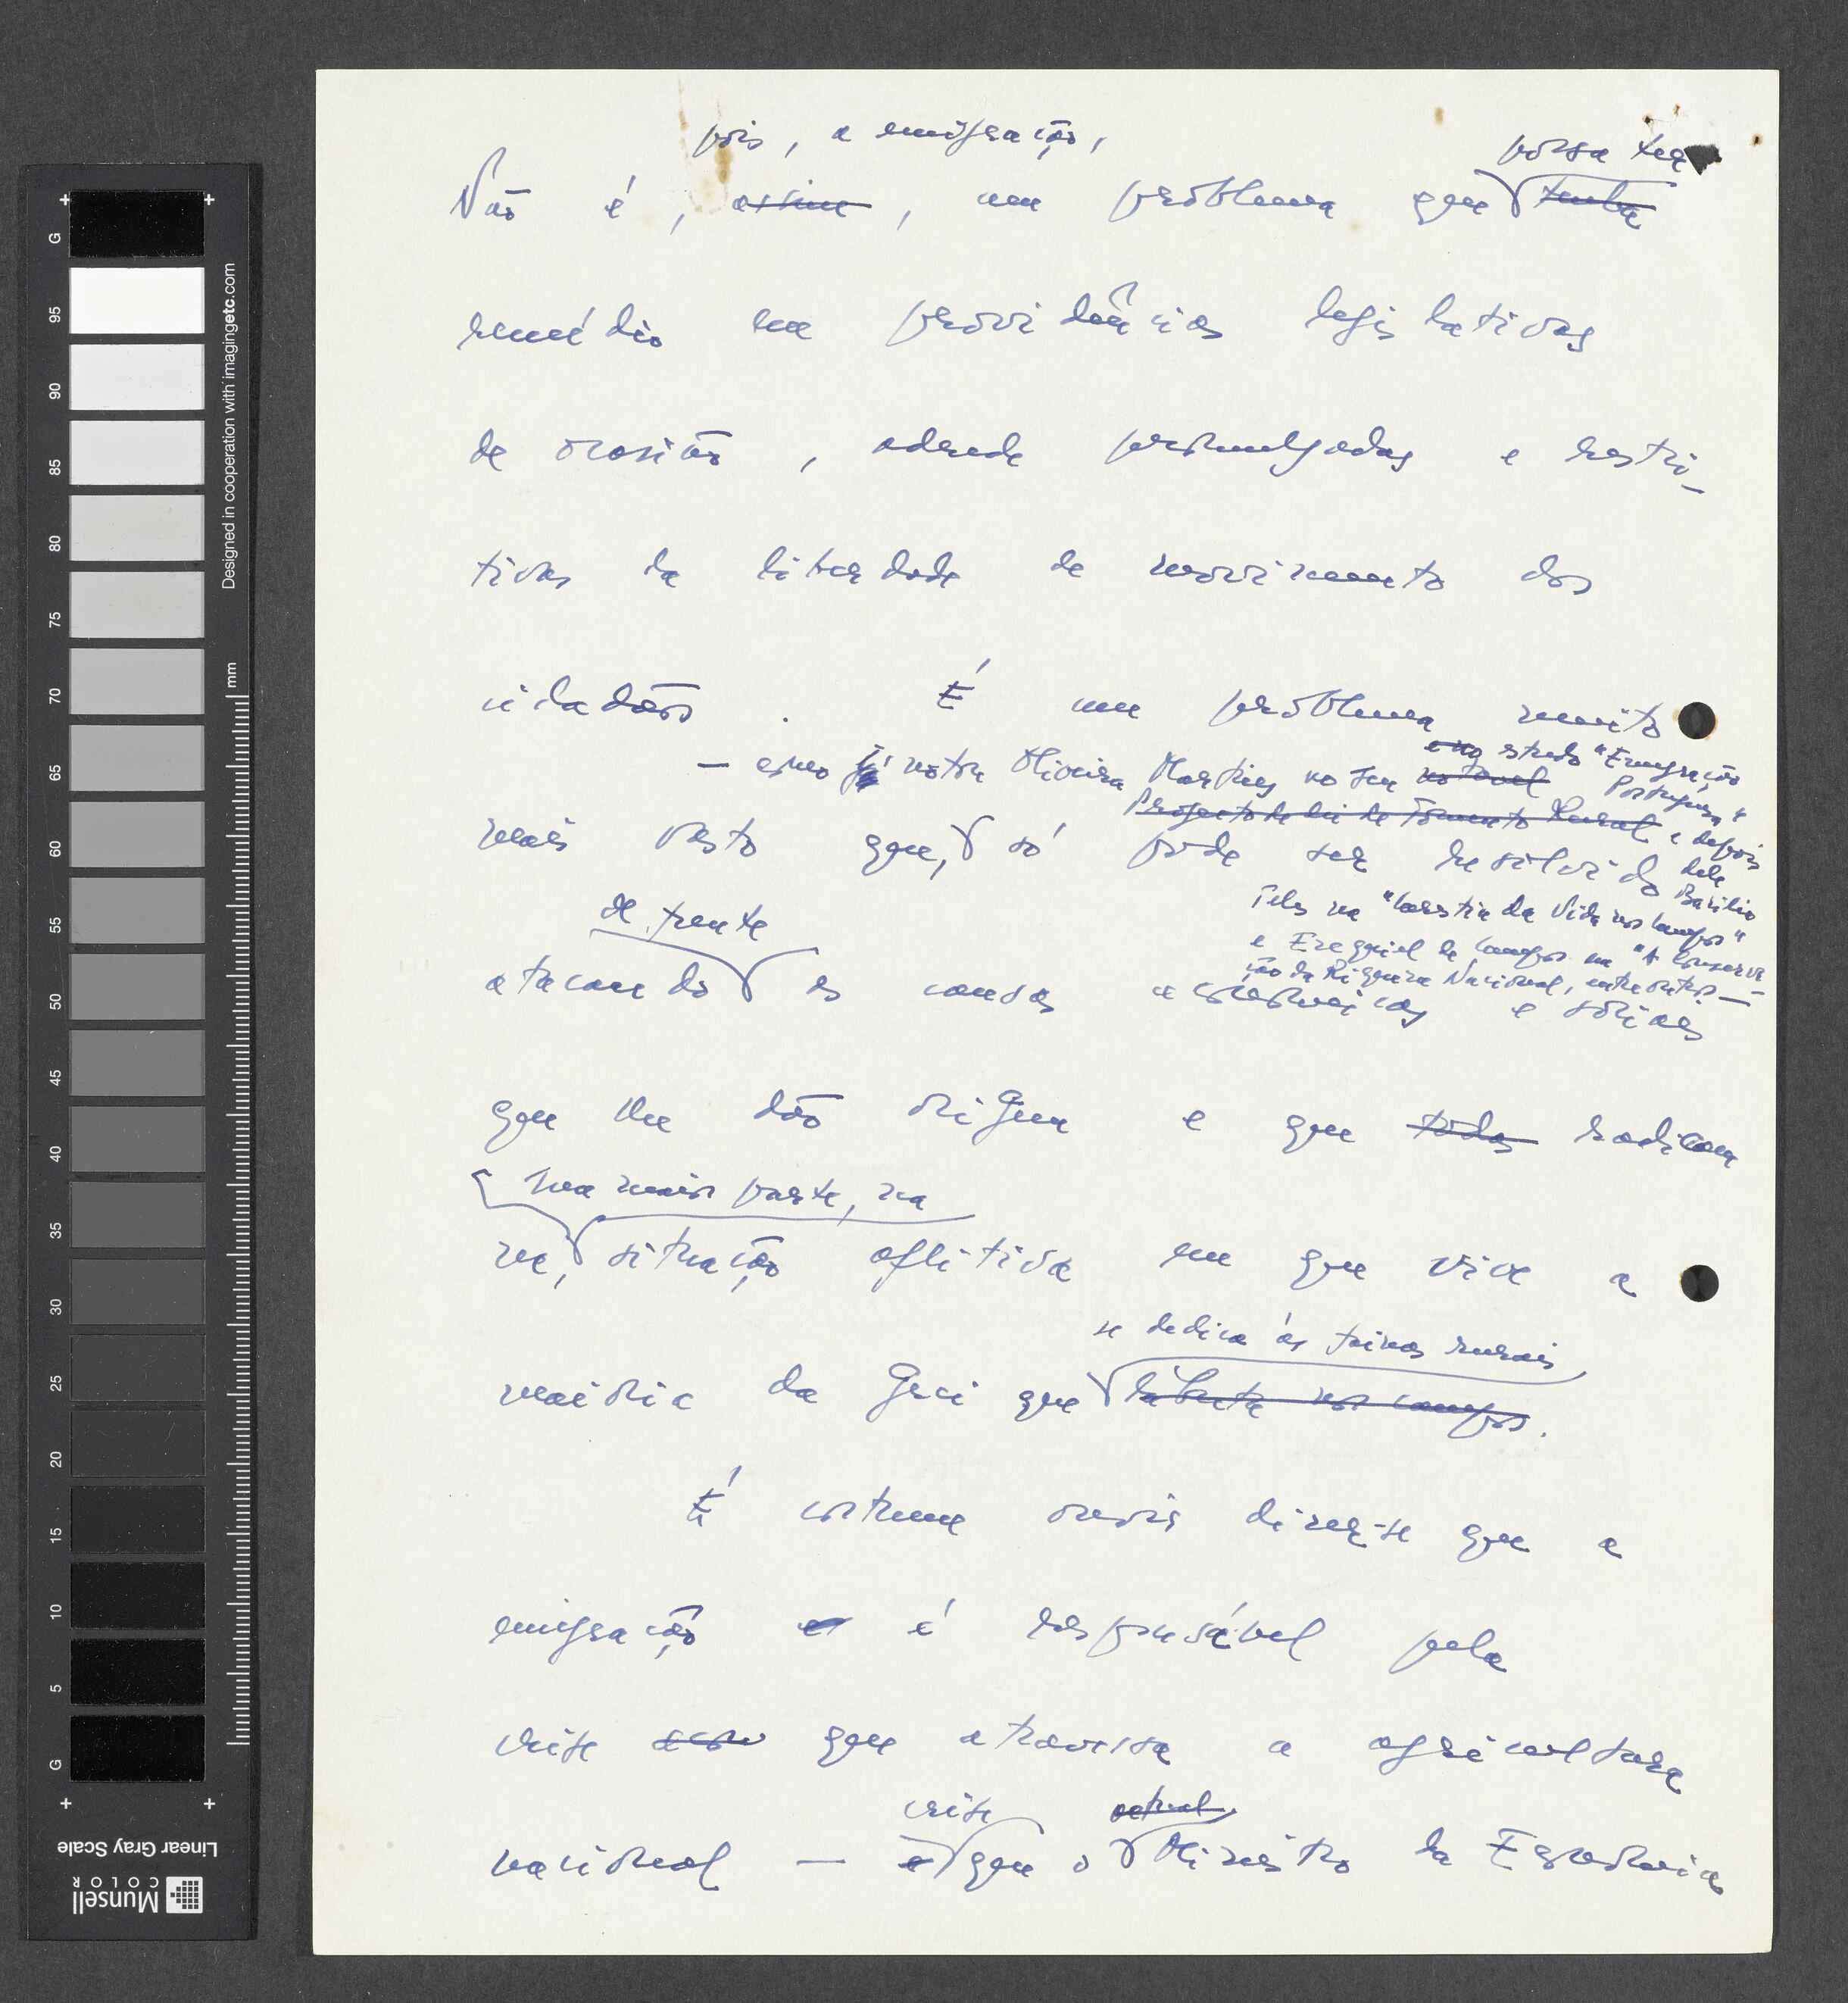 pois, a emigração,
possa ter
Não é, assim, um problema que tenha
remédio em providências legislativas
de ocasião, adrede promulgadas e restri-
tivas da liberdade de movimento dos
cidadãos. É um problema muito
— como já notou Oliveira Martins no seu notavel estudo "Emigração
Portuguesa"
Projecto de lei de Fomento Rural e depois
mais vasto que, só pode ser resolvido
dele Basilio
Teles na "Carestia da Vida nos Campos"
de frente
e Ezequiel de Campos na "A Conserva-
ção da Riqueza Nacional, entre outros —
atacando as causas económicas e sociais
que lhe dão origem e que todas radicam
sua maior parte, na
na, situação aflitiva em que vive a
se dedica às fainas rurais
maioria da Grei que labuta nos campos.
É costume ouvir dizer-se que a
emigração é responsável pela
crise que atravessa a agricultura
crise actual
nacional — e que o Ministro da Economia